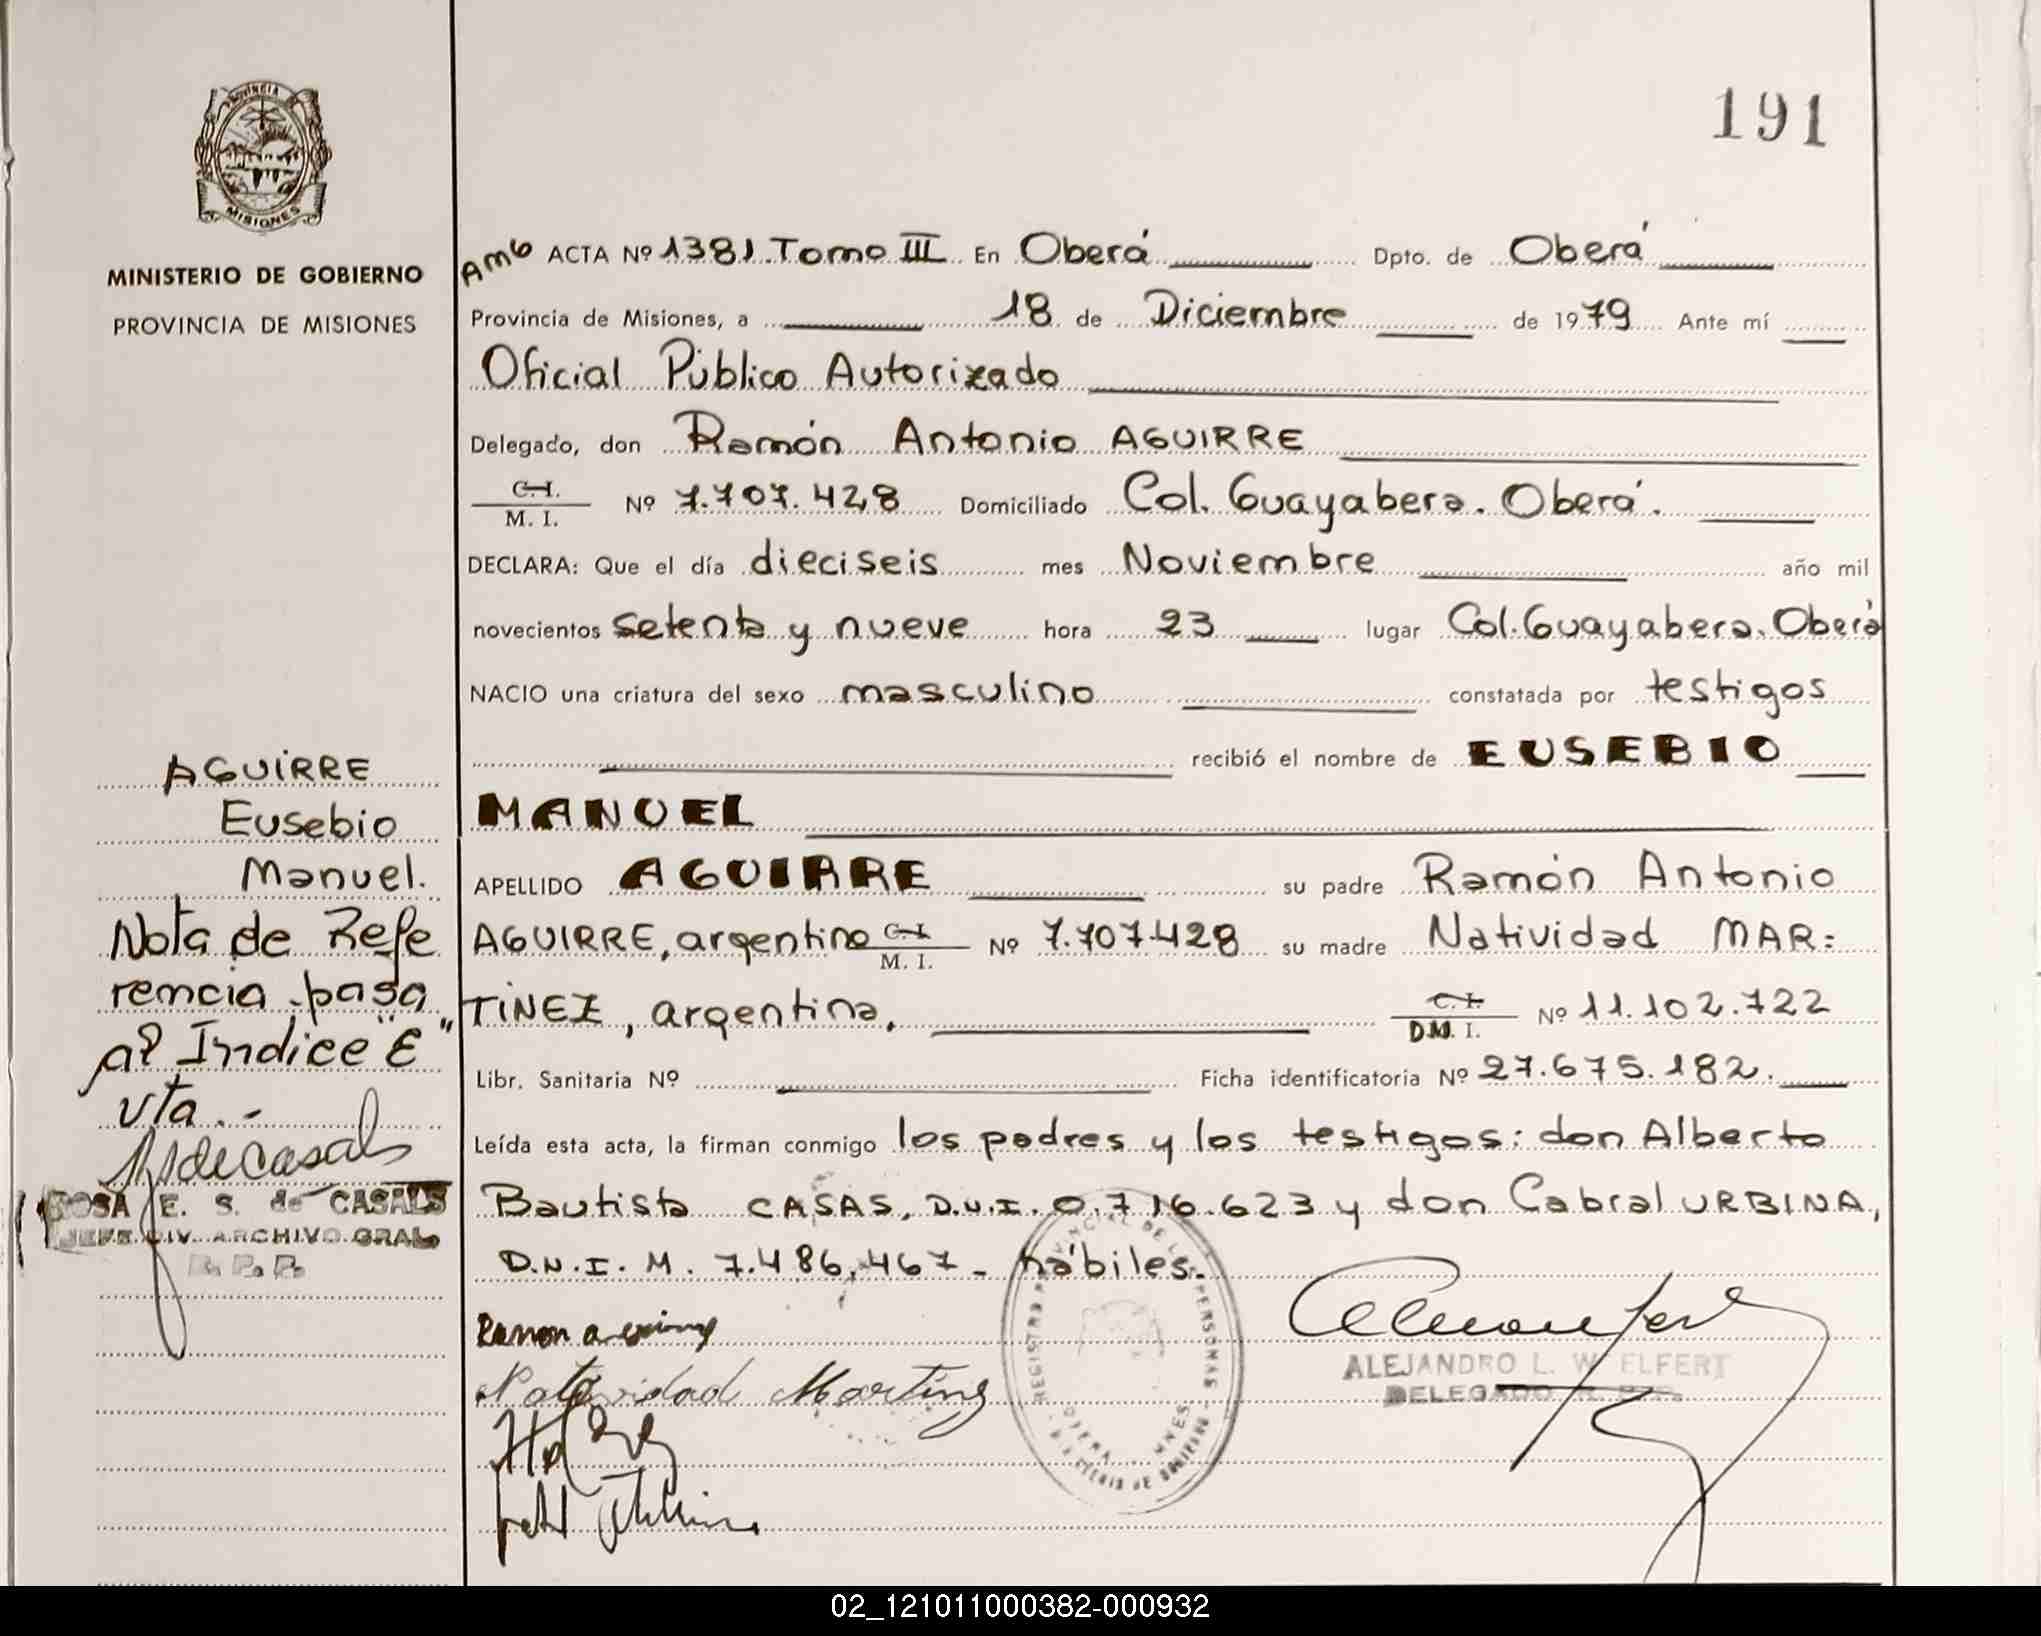 191
PROVINCIA DE
MISIONES
MINISTERIO DE GOBIERNO
PROVINCIA DE MISIONES
Amb ACTA Nº 1381 Tomo III En Oberá Dpto. de Oberá
Provincia de Misiones, a 18 de Diciembre de 1979 Ante mí
Oficial Público Autorizado
Delegado, don Ramón Antonio AGUIRRE
C.I.
M. I. Nº 7.707.428 Domiciliado Col. Guayabera. Oberá.
DECLARA: Que el día dieciseis mes Noviembre año mil
novecientos setenta y nueve hora 23 lugar Col. Guayabera. Oberá
NACIO una criatura del sexo masculino constatada por testigos
recibió el nombre de EUSEBIO
MANUEL
APELLIDO AGUIRRE su padre Ramón Antonio
AGUIRRE, argentino C.I. M. I. Nº 7.707.428 su madre Natividad MAR=
TINEZ, argentina. C.I. D.M. I. Nº 11.102.722
Libr. Sanitaria Nº Ficha identificatoria Nº 27.675.182.
Leída esta acta, la firman conmigo los padres y los testigos: don Alberto
Bautista CASAS, D.N.I. 0.716.623 y don Cabral URBINA,
D.N.I. M. 7.486.467 - hábiles.
AGUIRRE
Eusebio
Manuel.
Nota de Refe
rencia pasa
al Indice "E"
vta.-
ROSA E. S. de CASALS
JEFE DIV. ARCHIVO GRAL
R. P. P.
Ramon a
Natividad Martinez
REGISTRO PROVINCIAL DE LAS PERSONAS
ALEJANDRO L. W. ELFERT
DELEGADO
02_121011000382-000932